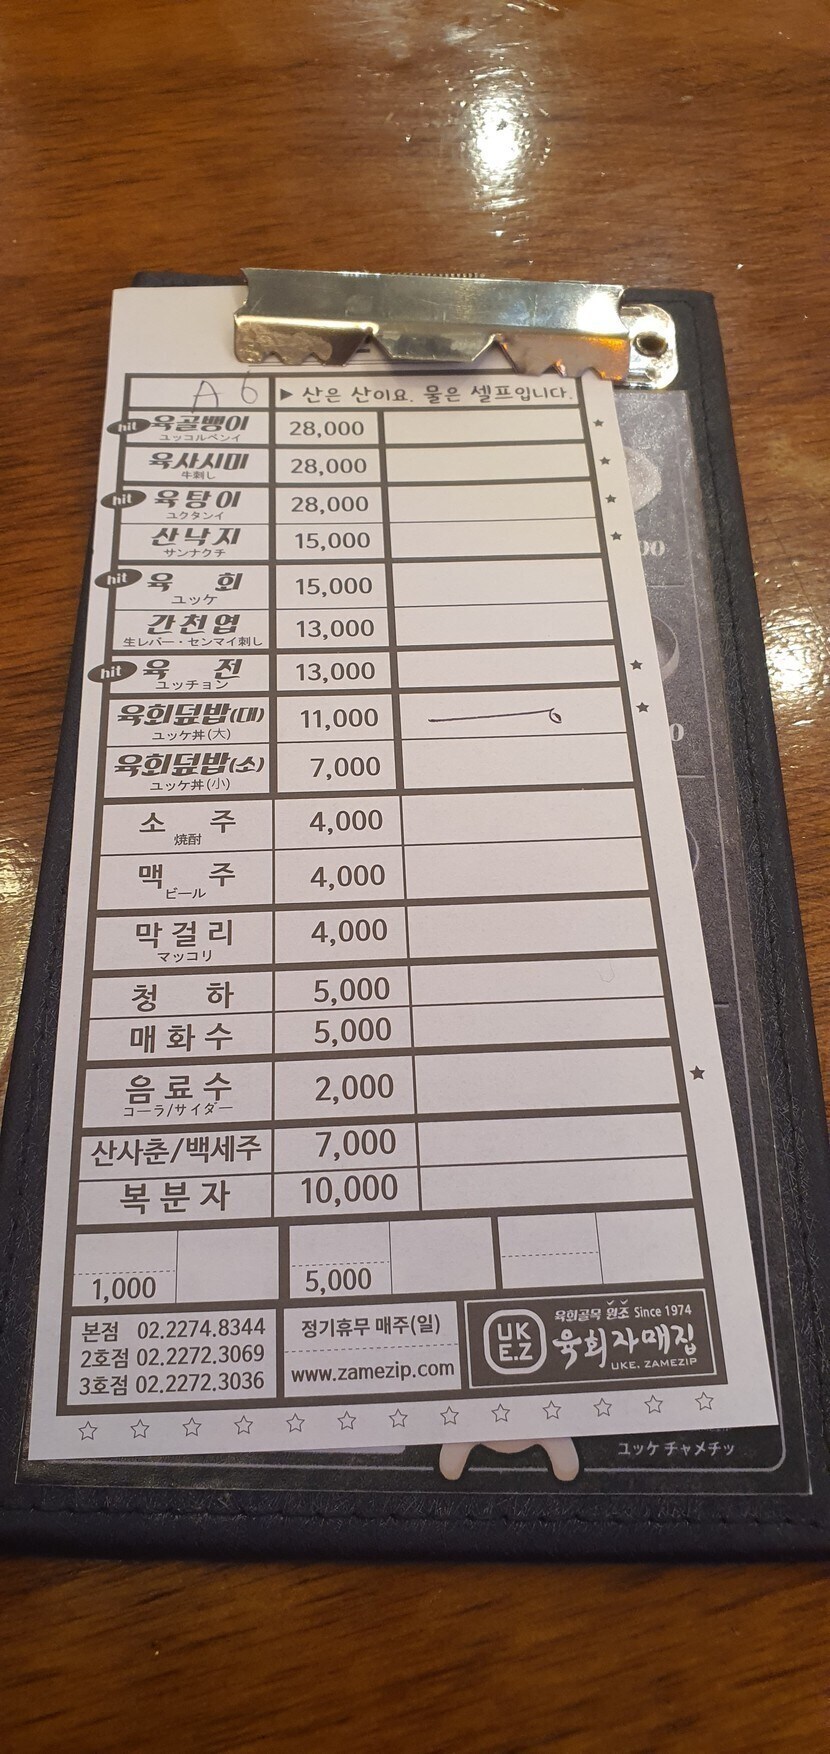 A 6
▶ 산은 산이요. 물은 셀프입니다.
hit 육골뱅이 28,000
ユッコルペンイ
육사시미 28,000
牛刺し
hit 육탕이 28,000
ユクタンイ
산낙지 15,000
サンナクチ
hit 육회 15,000
ユッケ
간천엽 13,000
生レバー・センマイ刺し
hit 육전 13,000
ユッチョン
육회덮밥(대) 11,000
ユッケ丼(大)
육회덮밥(소) 7,000
ユッケ丼(小)
소주 4,000
焼酎
맥주 4,000
ビール
막걸리 4,000
マッコリ
청하 5,000
매화수 5,000
음료수 2,000
コーラ/サイダー
산사춘/백세주 7,000
복분자 10,000
1,000 5,000
본점 02.2274.8344
2호점 02.2272.3069
3호점 02.2272.3036
정기휴무 매주(일)
www.zamezip.com
UK
E.Z
육회골목 원조 Since 1974
육회자매집
UKE. ZAMEZIP
ユッケ チャメチッ